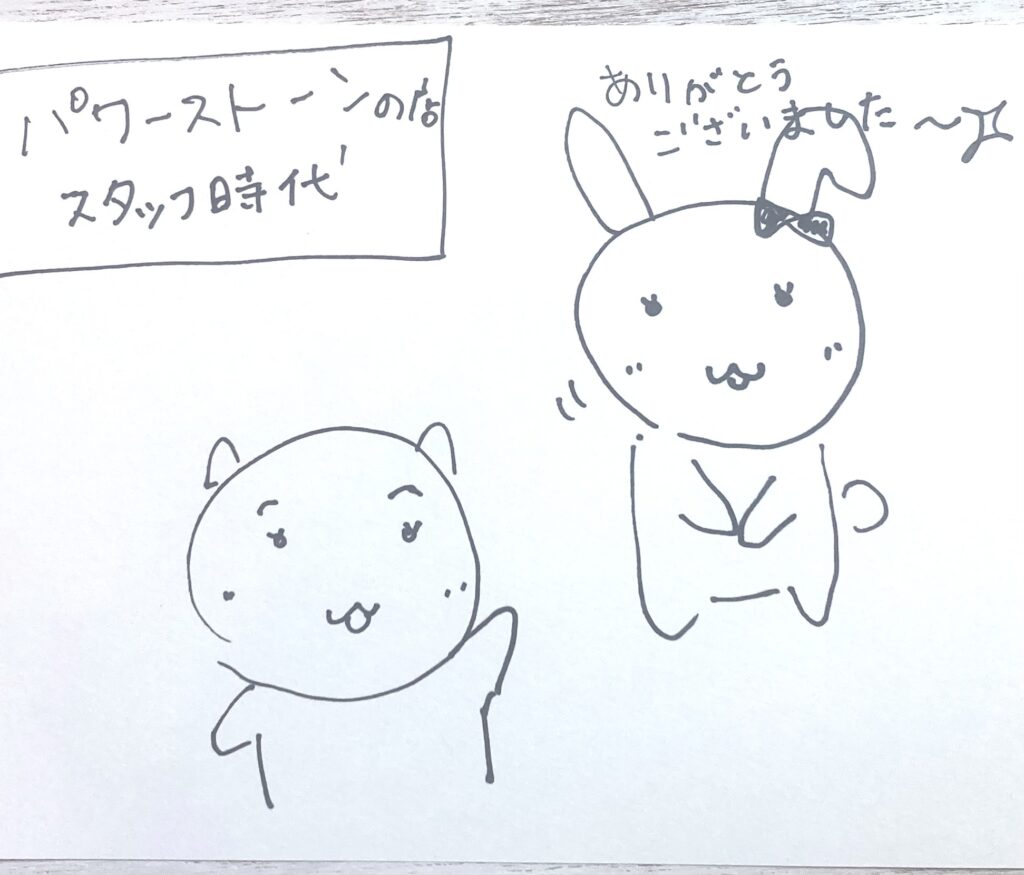 パワーストーンの店
スタッフ時代
ありがとう
ございました～